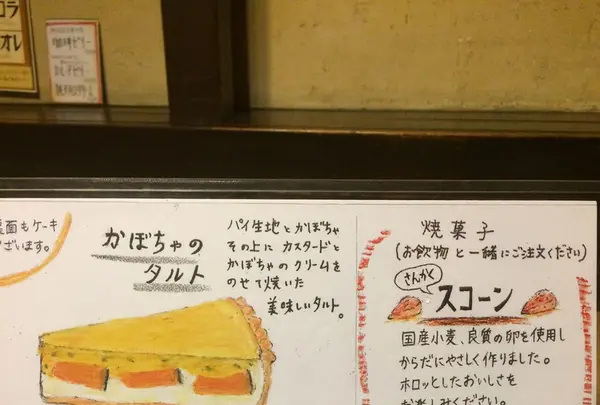 コラ
オレ
珈琲ゼリー
裏面もケーキ
ございます。
かぼちゃの
タルト
パイ生地とかぼちゃ
その上にカスタードと
かぼちゃのクリームを
のせて焼いた
美味しいタルト。
焼菓子
(お飲物と一緒にご注文ください)
さんかく
スコーン
国産小麦、良質の卵を使用し
からだにやさしく作りました。
ホロッとしたおいしさを
お楽しみください。